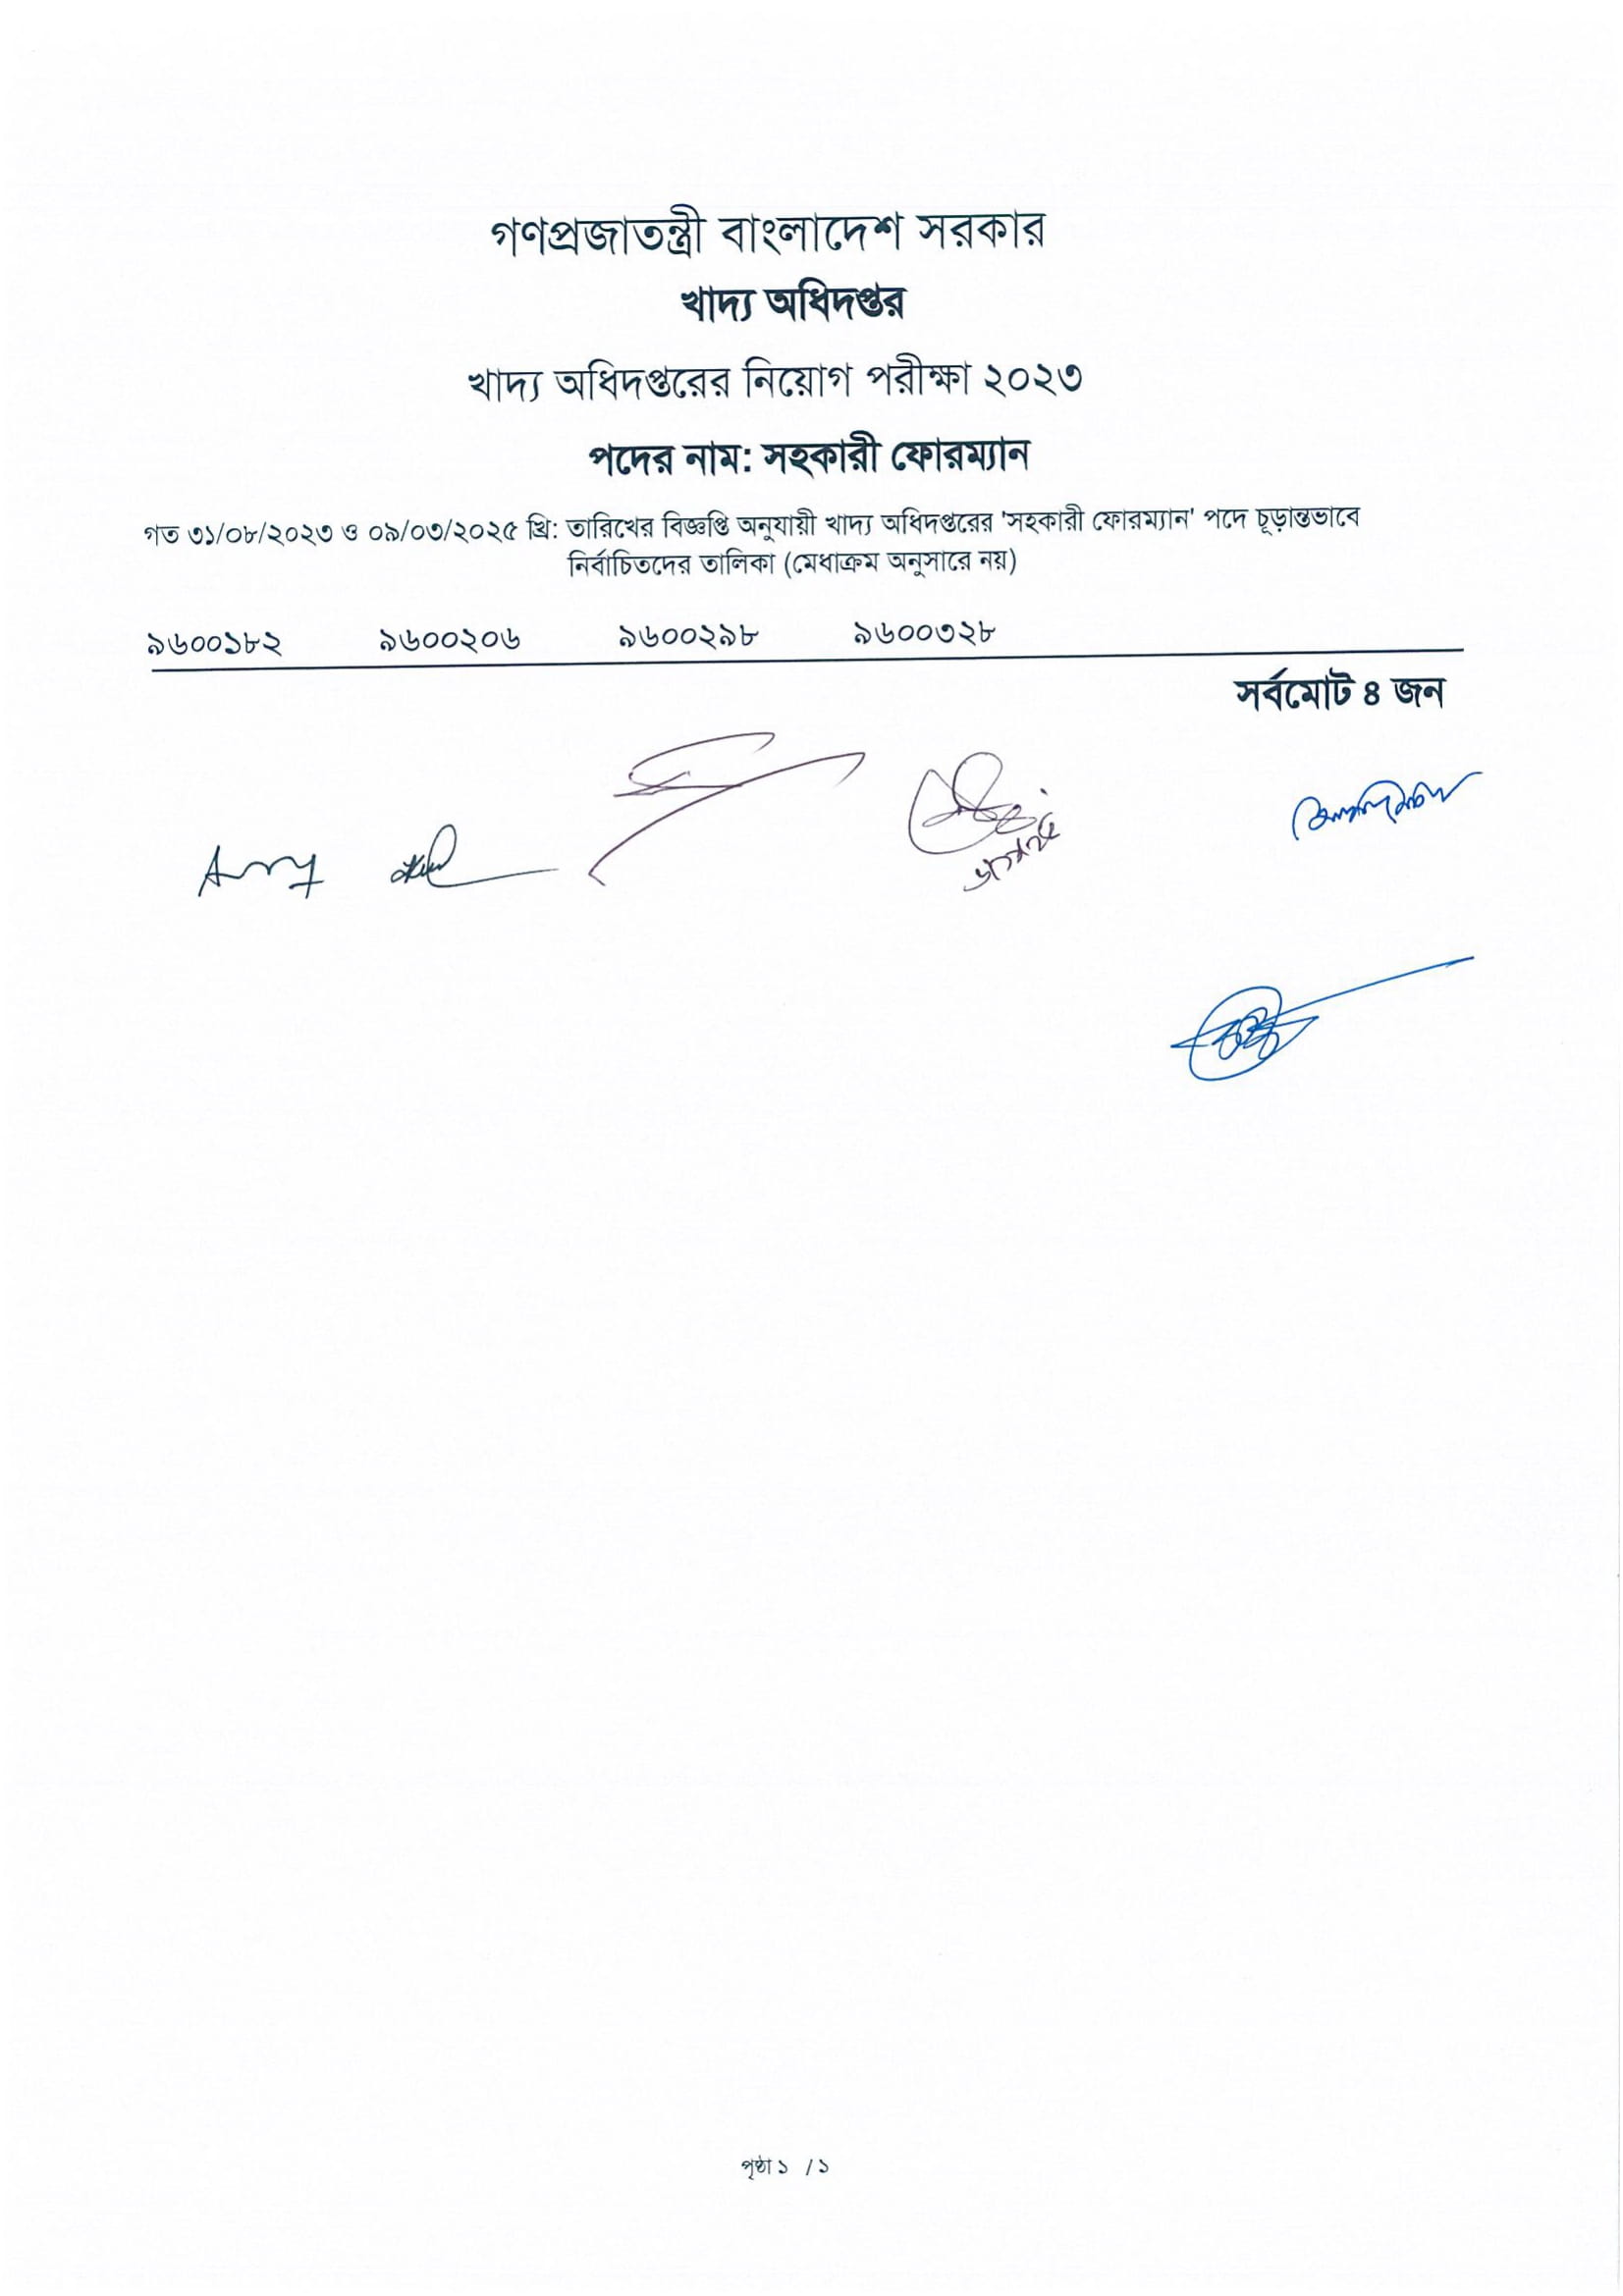 গণপ্রজাতন্ত্রী বাংলাদেশ সরকার
খাদ্য অধিদপ্তর
খাদ্য অধিদপ্তরের নিয়োগ পরীক্ষা ২০২৩
পদের নাম: সহকারী ফোরম্যান
গত ৩১/০৮/২০২৩ ও ০৯/০৩/২০২৫ খ্রি: তারিখের বিজ্ঞপ্তি অনুযায়ী খাদ্য অধিদপ্তরের 'সহকারী ফোরম্যান' পদে চূড়ান্তভাবে
নির্বাচিতদের তালিকা (মেধাক্রম অনুসারে নয়)
৯৬০০১৮২ ৯৬০০২০৬ ৯৬০০২৯৮ ৯৬০০৩২৮
সর্বমোট ৪ জন
পৃষ্ঠা ১ / ১